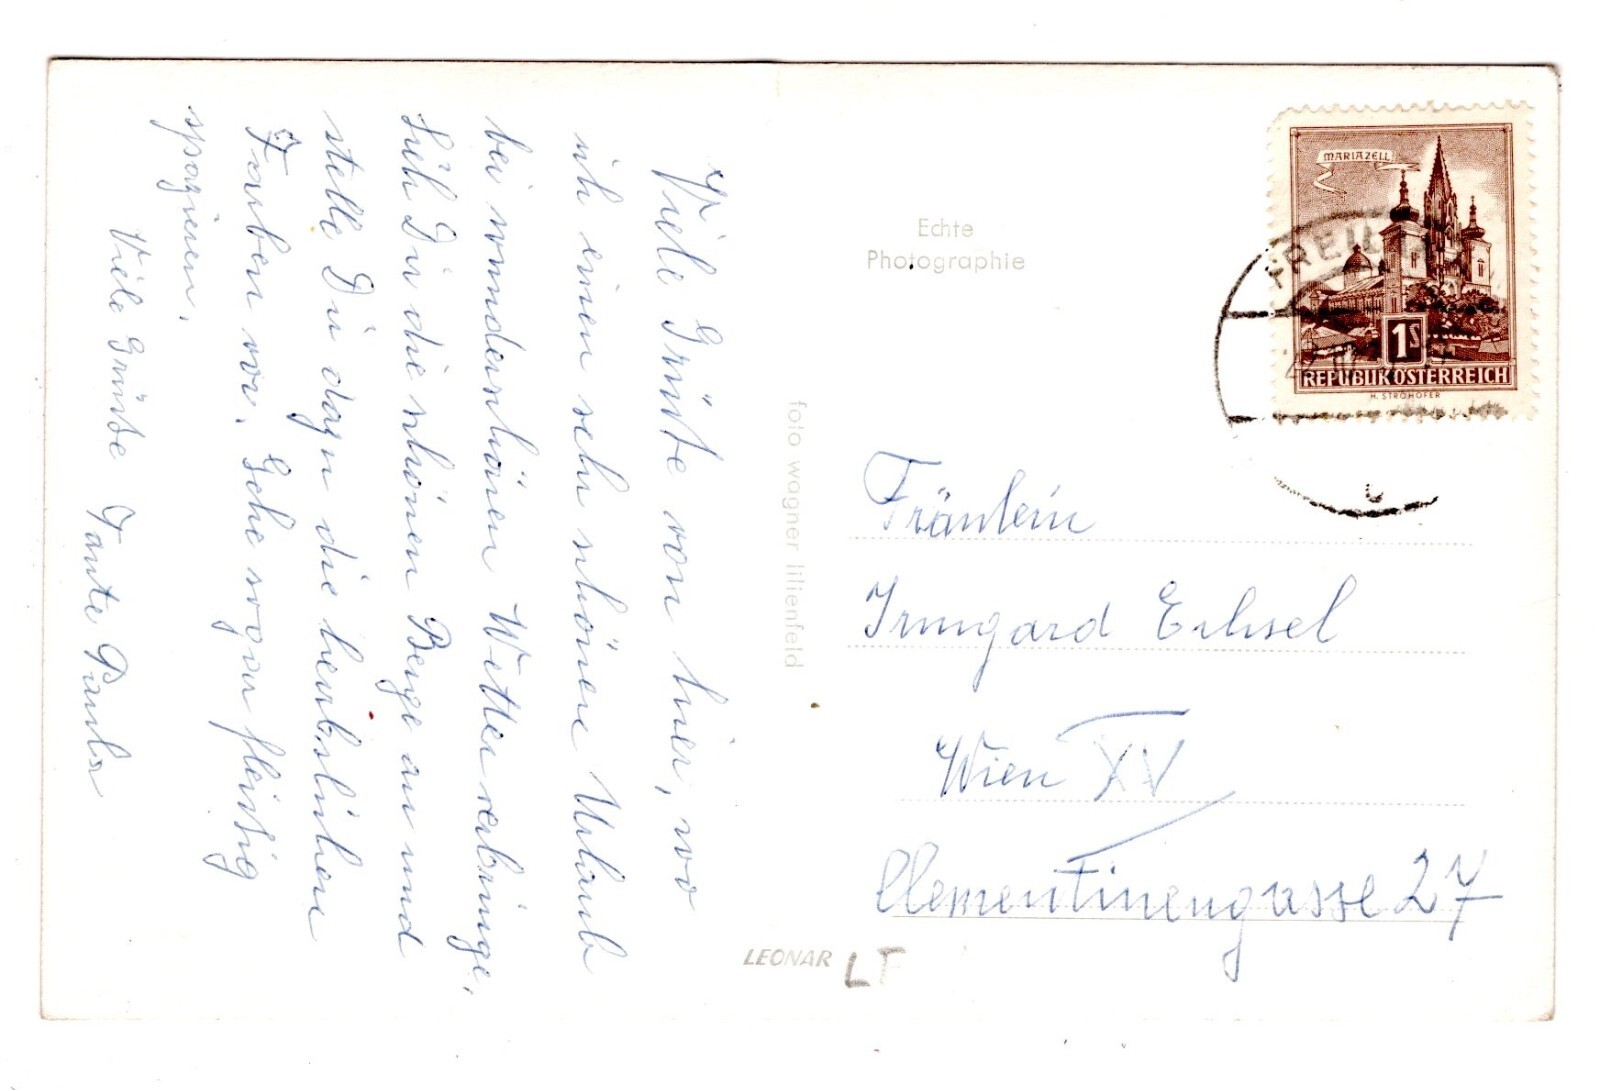 Viele Grüße von hier, wo
ich einen sehr schönen Urlaub
bei wunderschönen Wetter verbringe.
Sieh Dir die schönen Berge an und
stelle Dir dazu die herbstlichen
Farben vor. Gehe sogar fleißig
spazieren.
Viele Grüße Tante Paula
Echte
Photographie
foto wagner lilienfeld
LEONAR
LF
MARIAZELL
1S
REPUBLIK ÖSTERREICH
H. STROHOFER
Fräulein
Irmgard
Wien XV
Clementinengasse 27